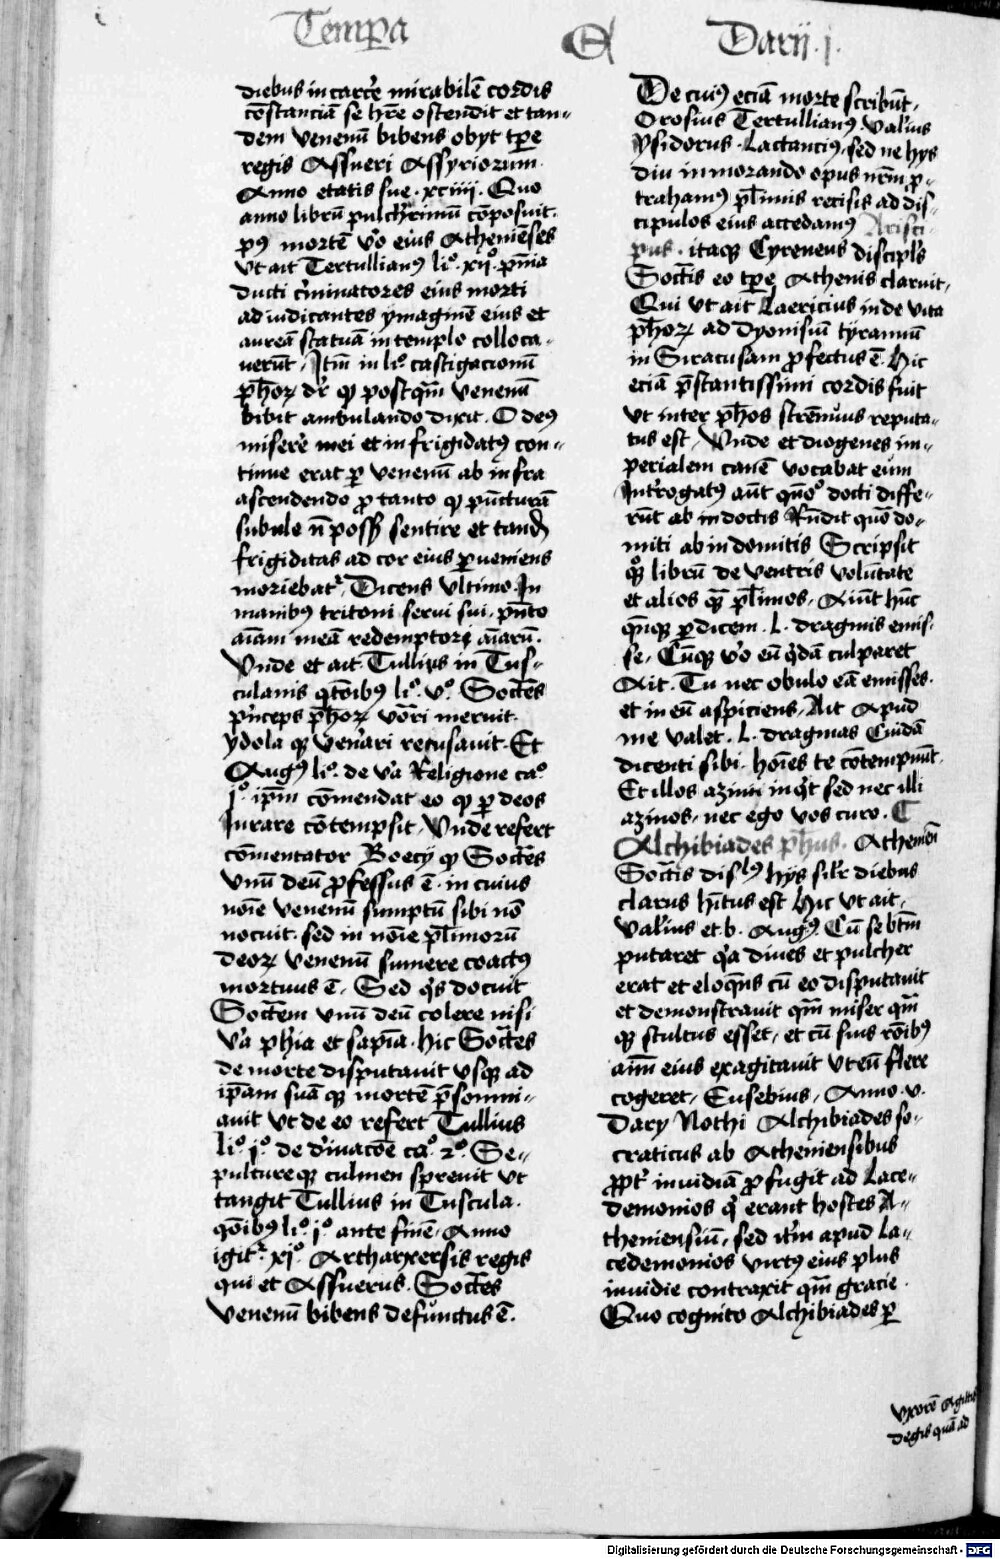 Tempa Et Darii . j.
diebus in carcere mirabilē cordis
cōstanciā se hr̄e ostendit et tan-
dem venenū bibens obyt tp̄e
regis Assueri Assyriorum.
Anno etatis sue . xciiii . Quo
anno librū pulch'rimū cōposuit.
p9 mortē v'o eius Atheniēses
vt ait Tertullian9 li.° xij.° pn̄ia
ducti c'minatores eius morti
adiudicantes ymaginē eius et
aureā statuā in templo colloca-
uerūt. Itm̄ in li.° castigacionū
ph'oꝝ dr̄ qꝫ postqm̄ venenū
bibit ambulando dixit. O de9
miserere mei et in frigidat9 con-
tinue erat ꝑ venenū ab infra
ascendendo ꝓ tanto qꝫ pūcturā
subule n̄ poss sentire et tand
frigiditas ad cor eius ꝑueniens
moriebat'. Dicens vltimo. In
manib9 tritoni serui sui. pn̄to
aīam meā redemptorꝫ aīarū.
Vnde et ait. Tullius in Tus-
culanis qt̄oīb9 li.° v.° Socrtēs
p'nceps ph'oꝝ vōri meruit.
ydola qꝫ ven'ari recusauit. Et
Aug9 li.° de v'a Religione ca.°
j.° ip̄m cōmendat eo qꝫ ꝑ deos
Iurare cōtempsit. Vnde refert
cōmentator Boecij qꝫ Socrtēs
vnū deū ꝓfessus ē. in cuius
noīe venenū sumptū sibi nō
nocuit. sed in noīe pl'imorū
deoꝝ venenū sumere coact9
mortuus ē. Sed q's docuit
Socrtēm vnū deū colere nisi
v'a ph'ia et sapīa. hic Socrtēs
de morte disputauit vsqꝫ ad
ip̄am suā qꝫ mortē p̄somni-
auit vt de eo refert Tullius
li.° j.° de d'inacōe ca.° 2.° Se-
pultureqꝫ culmen spreuit vt
tangit Tullius in Tuscula.
qōīb9 li.° j.° ante finē. Anno
igit' xj.° Artharxersis regis
qui et Assuerus. Socrtēs
venenū bibens defunctus ē.
De cui9 eciā morte scribūt.
Orosius Tertullian9. Val'ius
ysidorus. Lactanci9. sed ne hys
diu inmorando opus nr̄m ꝓ-
traham9 pl'imis recisis ad dis-
cipulos eius accedam9 Aristi-
pus. itaqꝫ Cyreneus discipl's
Socrtis eo tp̄e Athenis claruit.
Qui vt ait Laercius in de vita
ph'oꝝ ad Dyonisiū tyrannū
in Siracusam ꝓfectus ē. hic
eciā p̄stantissimi cordis fuit
vt inter ph'os strēnuus reputa-
tus est. Vnde et diogenes im-
perialem canē vocabat eum
Int'rogat9 aūt quō° docti diffe-
rūt ab indoctis Rn̄dit quō do-
miti ab indomitis Scripsit
librū de ventris volūtate
et alios qꝫ pl'imos. Aiūt hūc
ꝑdicem . L . dragmis emis-
se. Cūqꝫ v'o eū q'dā culparet
Ait. Tu nec obulo eā emisses.
et in eū aspiciens. Ait Apud
me valet . L . dragmas Cuidā
dicenti sibi. hoīes te cōtempnūt.
Et illos azini inq't sed nec illi
azinos. nec ego vos curo. C
Alchibiades ph'us. Atheniēn
Socrtis disl'9 hijs sil'r diebus
clarus hītus est Hic vt ait.
Val'ius et b. Aug9. Cū se btm̄
putaret q'a diues et pulcher
erat et eloqn̄s cū eo disputauit
et demonstrauit qm̄ miser qm̄
qꝫ stultus esset. et cū suis rōīb9
aīm eius exagitauit vt eū flere
cogeret. Eusebius. Anno. v.
Dary Nothi Alchibiades so-
craticus ab Atheniensibus
ꝓpt' inuidiā ꝓfugit ad Lace-
demonios q' erant hostes A-
theniensiū. sed it'm apud La-
cedemonios virt9 eius plus
inuidie contraxit qm̄ gracie.
Quo cognito Alchibiades ꝑ
vxorē Agidis
degis quā ad
Digitalisierung gefördert durch die Deutsche Forschungsgemeinschaft - DFG